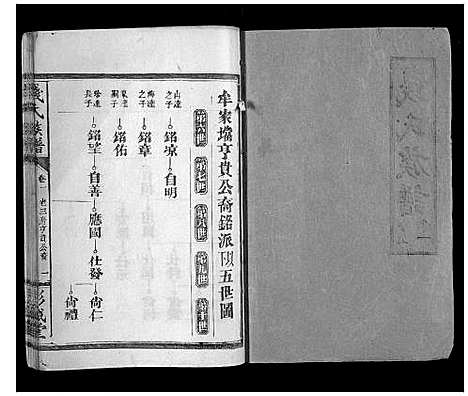 牟家壋亨貴公裔銘派下以五世圖
第六世
第七世
第八世
第九世
第十世
山達之子
銘凉
自明
海達之子
銘章
達嗣子
銘佑
達長子
銘望
自善
應國
仕發
尙仁
尙禮
錢氏族譜
卷一
老三房亨貴公裔
一
彭城堂
錢氏族譜
卷一